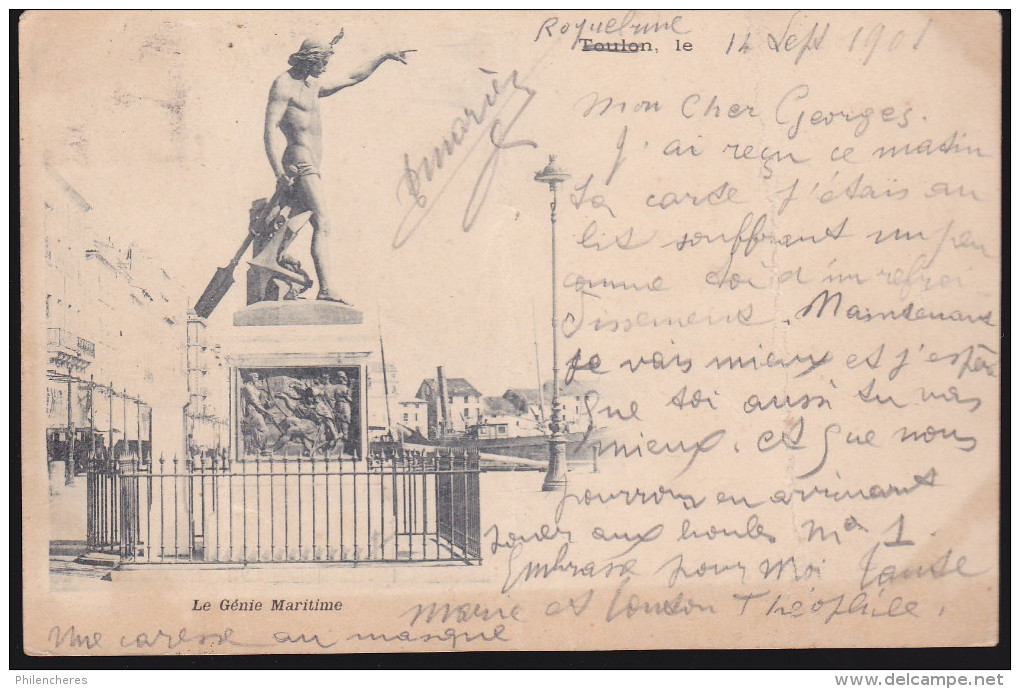 Roquebrune
Toulon, le 14 Sept 1901
Mon Cher Georges.
J'ai reçu ce matin
ta carte j'étais au
lit souffrant un peu
comme toi d'un refroi-
dissement. Maintenant
je vais mieux et j'espère
que toi aussi tu vas
mieux. et que nous
pourrons en arrivant
jouer aux boules Ma 1.
Embrasse pour moi tante
Marie et tonton Théophile.
Une caresse au masque
Le Génie Maritime
Philencheres
www.delcampe.net